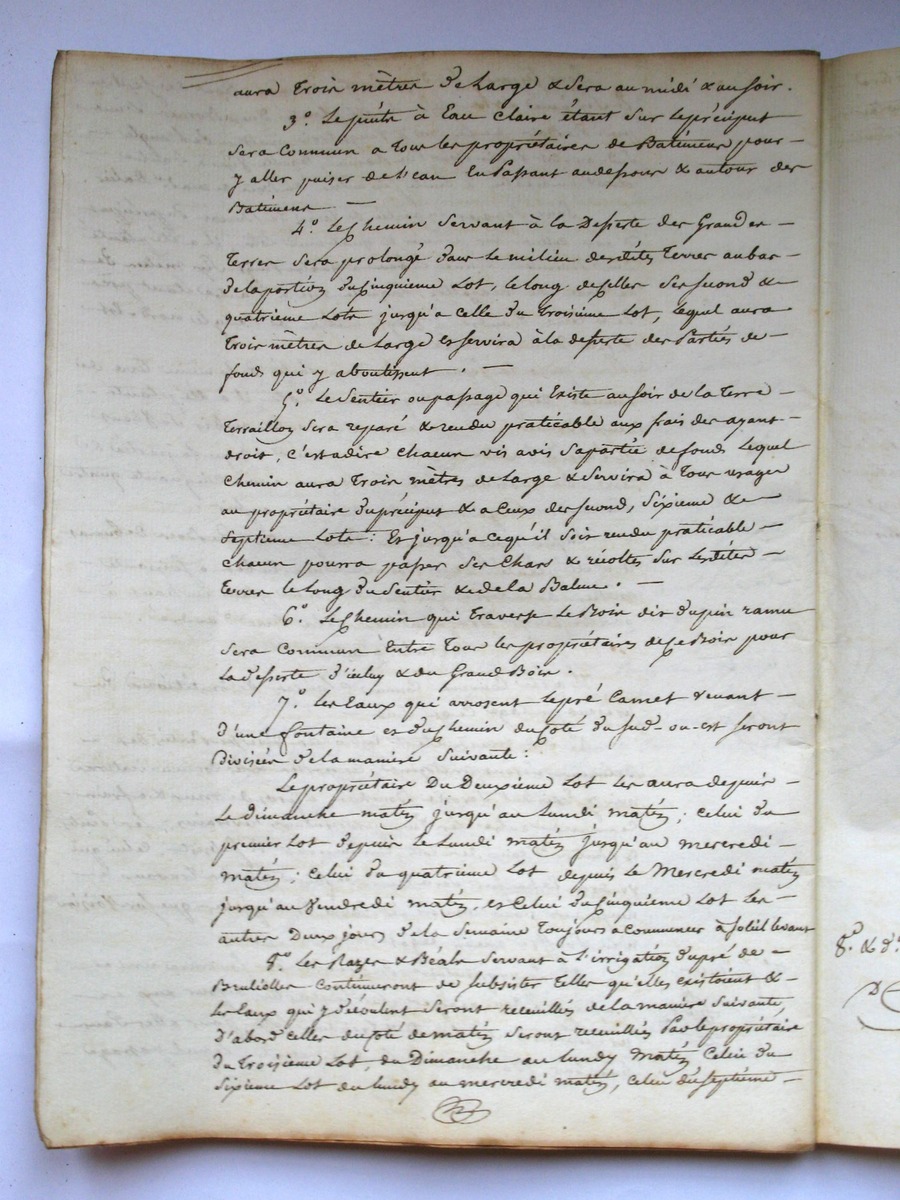 aura trois mètres de Large & Sera au midi & au soir.
3.° Le puits à Eau Claire étant Sur le préciput
Sera Commun a tous les propriétaires de Batimens pour
y aller puiser de l'eau En Passant au dessous & autour des
Batimens
4.° Le Chemin Servant à la Desserte des Grandes
Terres Sera prolongé dans le milieu desdites Terres au bas
de la portion du Cinquième Lot, le long de Celles des second &
quatrième Lots jusqu'a Celle du Troisième Lot, lequel aura
Trois mètres de Large et servira à la desserte des Parties de
fonds qui y aboutissent.
5.° Le Sentier ou passage qui Existe au soir de la Terre
Terraillon Sera reparé & rendu praticable aux frais des ayant
droit, c'est adire chacun vis avis Sa partie de fonds Lequel
Chemin aura Trois mètres de Large & Servira à Tous usages
au propriétaire du préciput & a Ceux des second, Sixième &
Septième Lots : Et jusqu'a ce qu'il Soit rendu praticable
chacun pourra passer Ses Chars & récoltes Sur lesdites
Terres le Long du Sentier & de la Balme.
6.° Le Chemin qui Traverse Le Bois dit du pin ramu
Sera Commun Entre Tous les propriétaires de Ce Bois pour
La desserte d'icelui & du Grand Bois.
7.° Les Eaux qui arrosent Le pré Carnet venant
d'une fontaine et du Chemin du Coté du Sud-ou-est seront
Divisées de la manière Suivante :
Le propriétaire Du Deuxième Lot les aura depuis
Le Dimanche matin jusqu'au Lundi matin ; Celui du
premier Lot depuis Le Lundi matin jusqu'au mercredi
matin ; Celui du quatrième Lot depuis Le Mercredi matin
jusqu'au Vendredi matin, et Celui du Cinquième Lot les
autres Deux jours de la Semaine Toujours a Commencer à Soleil levant
8.° Les Razes & Béals Servant à l'irrigation du pré de
Bruliolles Continueront de Subsister Telles qu'elles existoient &
Les Eaux qui y découlent Seront recueillies de la manière Suivante,
D'abord Celles du Coté de matin Seront recueillies Par le propriétaire
du Troisième Lot, du Dimanche au Lundy Matin, Celui du
Sixième Lot du lundy au mercredi matin, Celui du septième